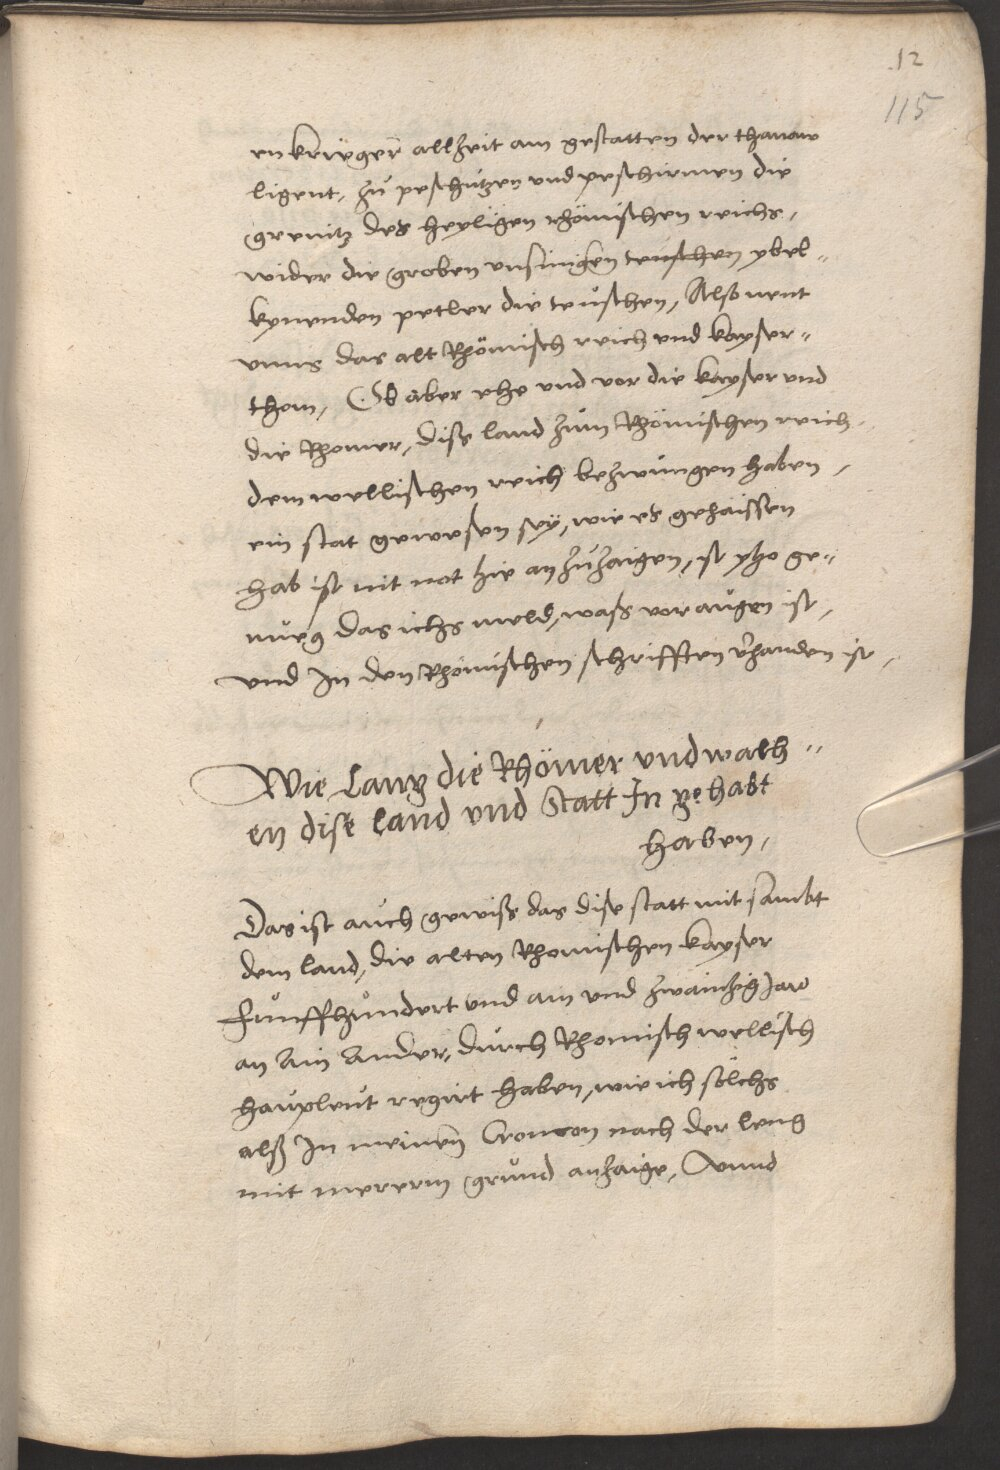 12
115
en krieger allzeit am gestatten der thanaw
ligent, zu peschutzen und peschirmen die
grenitz des heyligen rhömischen reichs,
wider die groben unsinigen teuschen ybel-
kynenden petler die teuschen, Also nent
unns das alt Rhömisch reich und kayser-
thom, Ob aber ehe und vor die kayser und
die Rhomer, dise land zum Rhömischen reich,
dem wellischen reich bezwungen haben,
ein stat gewesen sey, wie es gehaissen
hab ist nit not hie anzuzaigen, ist yzo ge-
nueg das ichs meld, waß vor augen ist,
und In den Rhömischen schrifften v̄handen ist,
Wie Lang die Rhömer und walh-
en dise land und Statt In gehabt
haben,
Das ist auch gewiss das dise statt mit sambt
dem land, die alten Rhomischen kayser
Funffhundert und ain und zwainzig Jare
an Ain Ander, durch Rhomisch wellisch
hauptleut regirt haben, wie ich sölchs
alß In meinen Cronicon nach der leng
mit mererm grund anzaige, Unnd